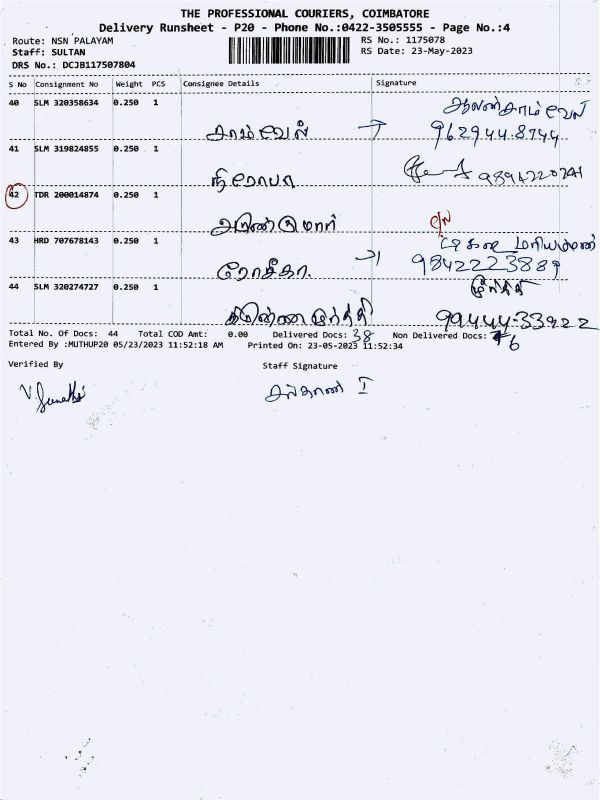 THE PROFESSIONAL COURIERS, COIMBATORE
Delivery Runsheet - P20 - Phone No.:0422-3505555 - Page No.:4
Route: NSN PALAYAM
RS No.: 1175078
Staff: SULTAN
RS Date: 23-May-2023
DRS No.: DCJB117507804
S No Consignment No Weight PCS Consignee Details Signature
40 SLM 320358634 0.250 1
சாம்வேல்
9629448744
41 SLM 319824855 0.250 1
நிரோபா
9894220241
42 TDR 200014874 0.250 1
அருண்குமார்
43 HRD 707678143 0.250 1
ரோசீகா
9842223889
44 SLM 320274727 0.250 1
மூர்த்தி
99444-33922
Total No. Of Docs: 44 Total COD Amt: 0.00 Delivered Docs: 38 Non Delivered Docs: 6
Entered By :MUTHUP20 05/23/2023 11:52:18 AM Printed On: 23-05-2023 11:52:34
Verified By Staff Signature
சுல்தான் I